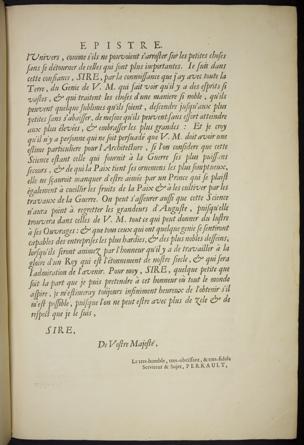 EPISTRE.
l'Univers, comme s'ils ne pouvoient s'arrester sur les petites choses
sans se détourner de celles qui sont plus importantes. Ie suis dans
cette confiance, SIRE, par la connoissance que j'ay avec toute la
Terre, du Genie de V. M. qui fait voir qu'il y a des esprits si
vastes, & qui traitent les choses d'une maniere si noble, qu'ils
peuvent quelque sublimes qu'ils soient, descendre jusqu'aux plus
petites sans s'abaisser, de mesme qu'ils peuvent sans effort atteindre
aux plus élevées, & embrasser les plus grandes : Et je croy
qu'il n'y a personne qui ne soit persuadé que V. M. doit avoir une
estime particuliere pour l'Architecture, si l'on considere que cette
Science estant celle qui fournit à la Guerre ses plus puissans
secours, & de qui la Paix tient ses ornemens les plus somptueux,
elle ne sçauroit manquer d'estre aimée par un Prince qui se plaist
également à cueillir les fruits de la Paix & à les cultiver par les
travaux de la Guerre. On peut s'asseurer aussi que cette Science
n'aura point à regretter les grandeurs d'Auguste, puisqu'elle
trouvera dans celles de V. M. tout ce qui peut donner du lustre
à ses Ouvrages : & que tous ceux qui ont quelque genie se sentiront
capables des entreprises les plus hardies, & des plus nobles desseins,
lorsqu'ils seront animez par l'honneur qu'il y a de travailler à la
gloire d'un Roy qui est l'étonnement de nostre siecle, & qui sera
l'admiration de l'avenir. Pour moy, SIRE, quelque petite que
soit la part que je puis pretendre à cet honneur où tout le monde
aspire, je m'estimeray toûjours infiniment heureux de l'obtenir s'il
m'est possible, puisque l'on ne peut estre avec plus de zele & de
respect que je le suis,
SIRE,
De Vostre Majesté,
Le tres-humble, tres-obeïssant, & tres-fidele
Serviteur & Sujet, PERRAULT,